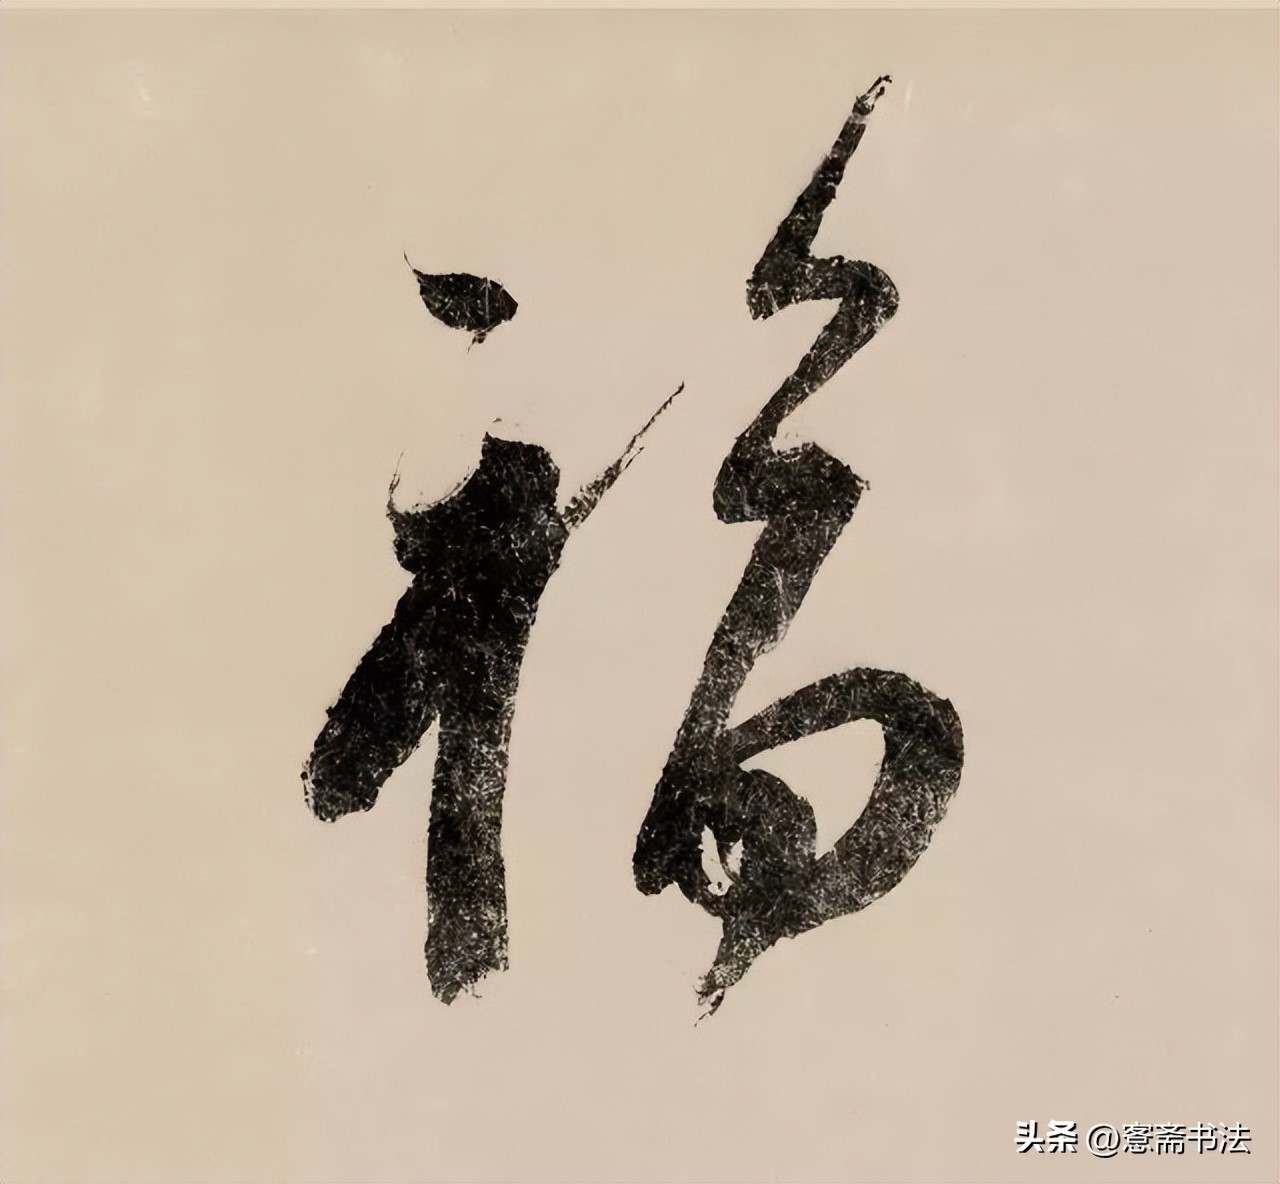 福
头条 @窓斋书法